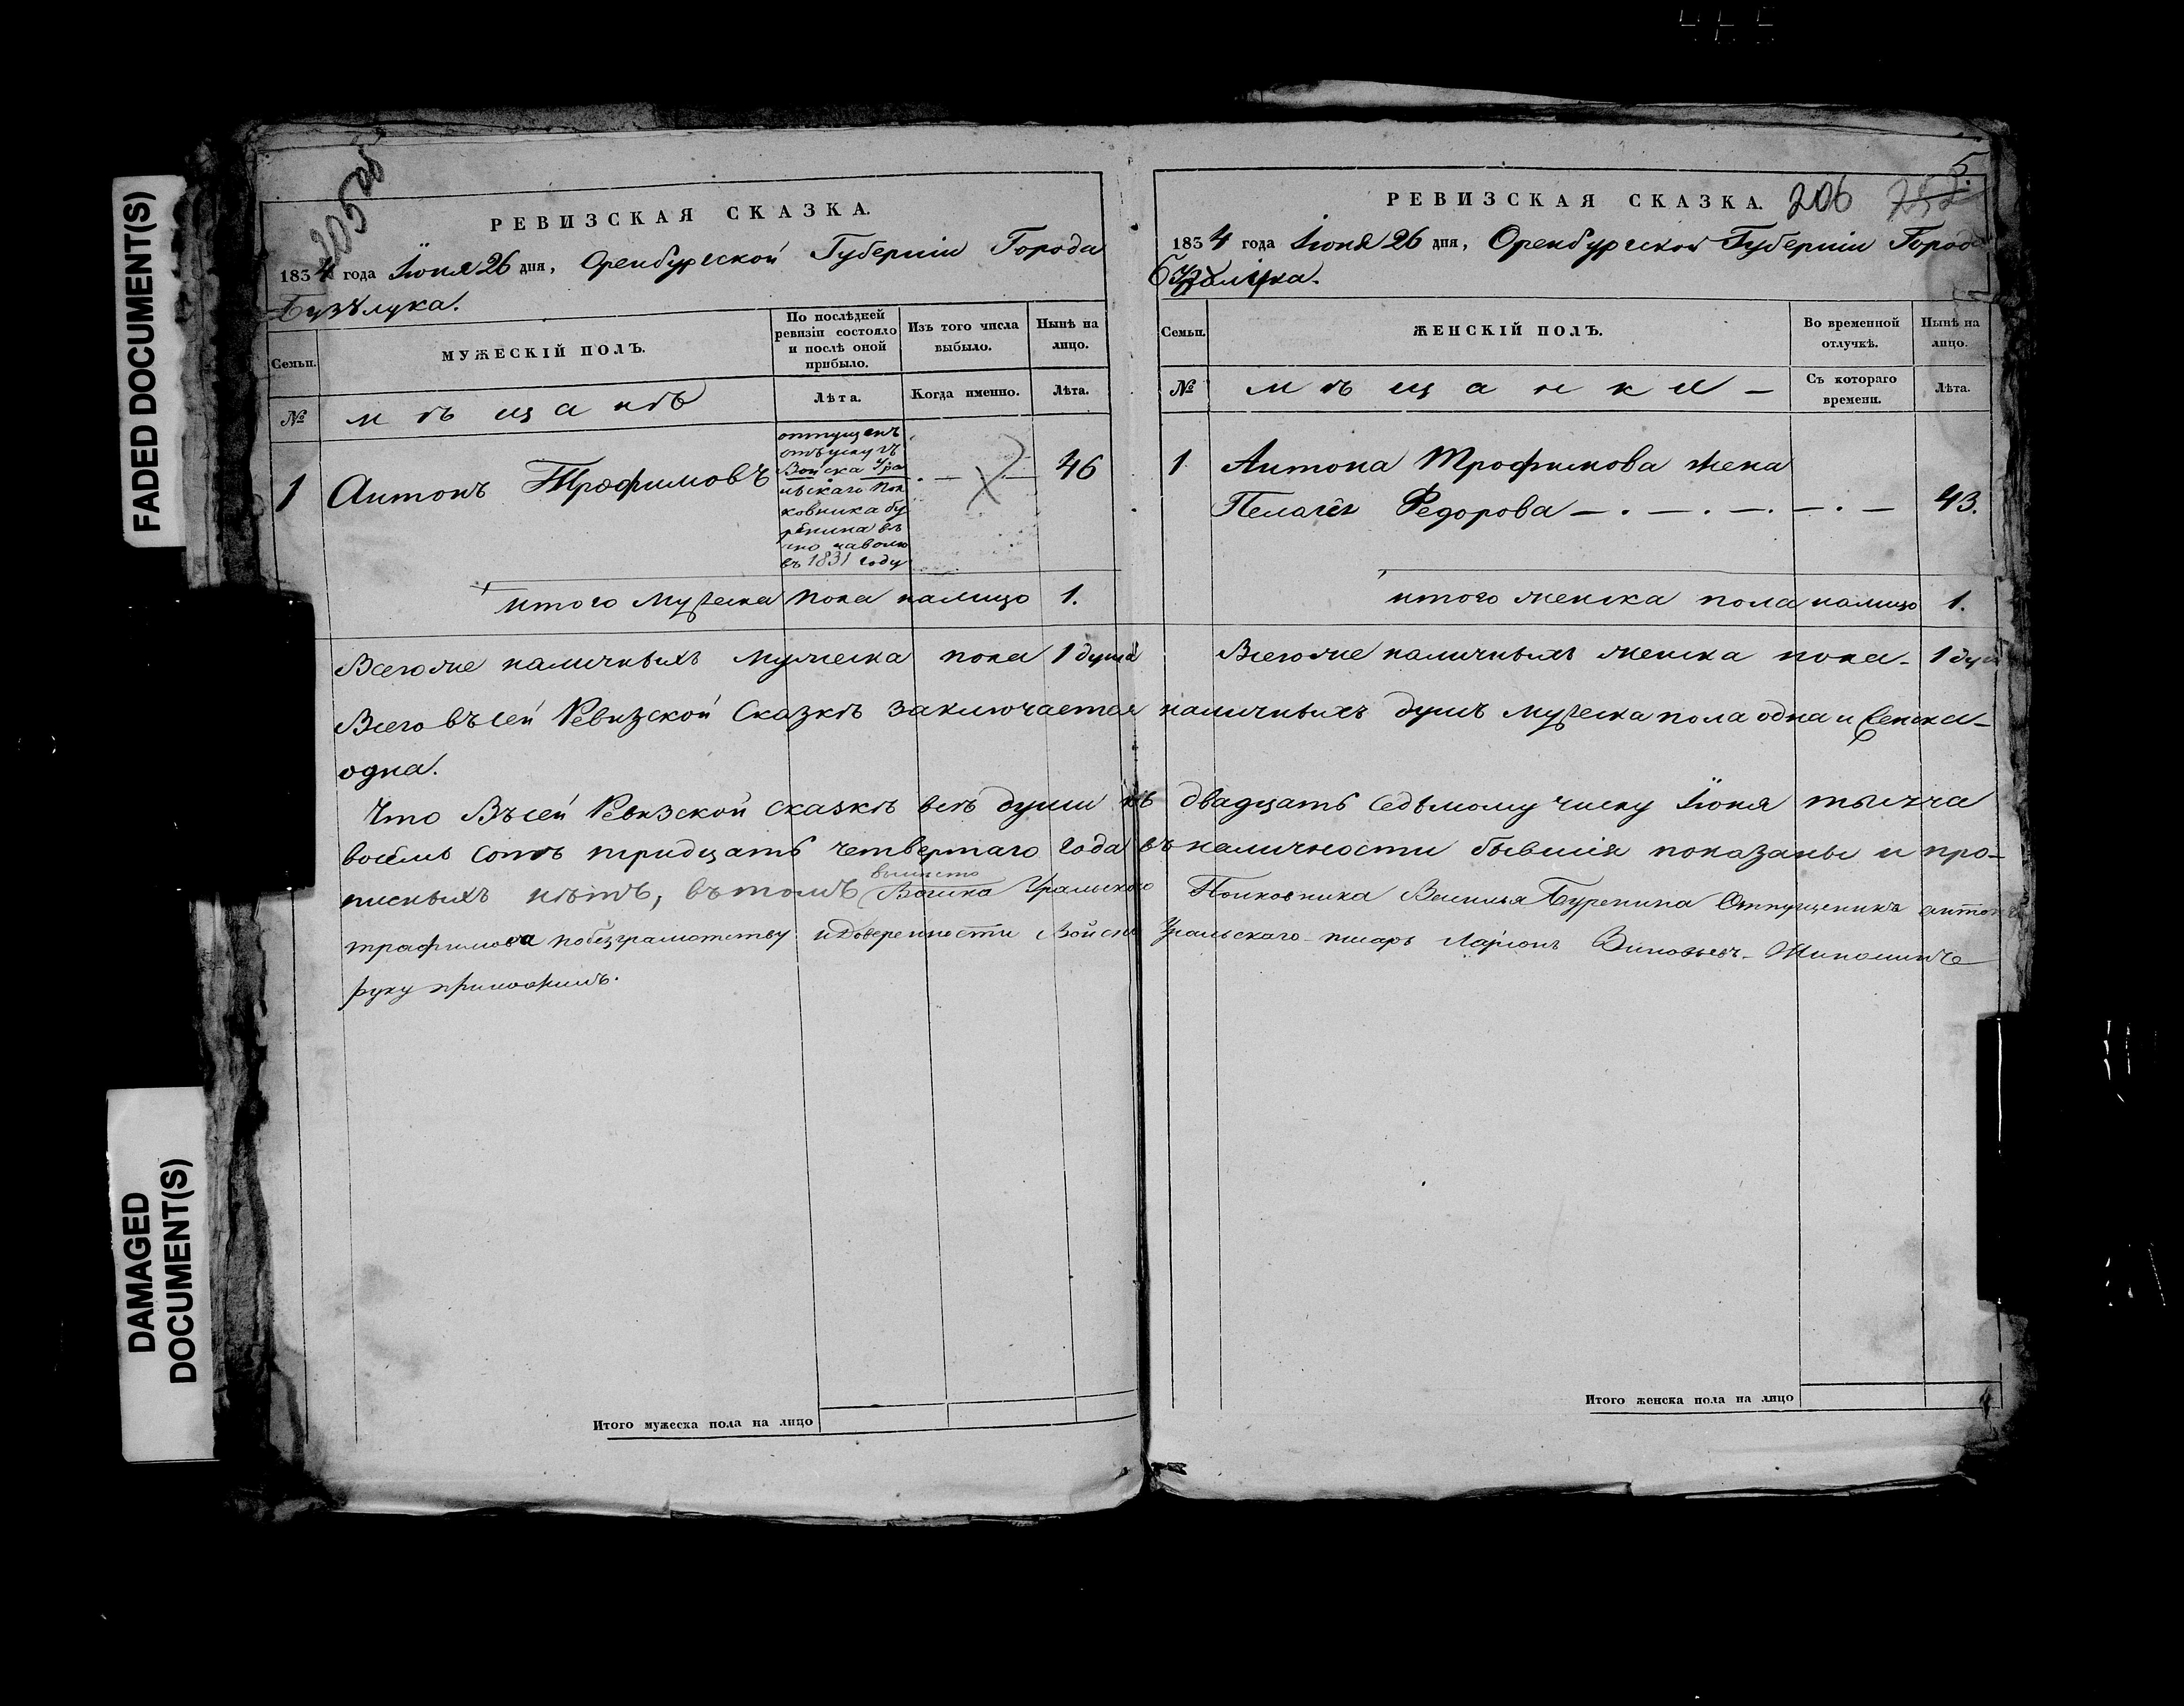 FADED DOCUMENT(S)
DAMAGED
DOCUMENT(S)
РЕВИЗСКАЯ СКАЗКА.
1834 года Іюня 26 дня, Оренбургской Губерніи Города
Бузулука.
Семьи.
МУЖЕСКІЙ ПОЛЪ.
По послѣдней
ревизіи состояло
и послѣ оной
прибыло.
Изъ того числа
выбыло.
Нынѣ на
лицо.
№
мѣщанѣ
Лѣта.
Когда именно.
Лѣта.
1 Антонъ Трофимовъ
отпущенъ
Войска Ура
льскаго Пол
ковника Бу
ренина вѣ
чно наволю
въ 1831 году
46
итого Мужеска пола налицо 1.
Всегоже наличныхъ мужеска пола 1 душа
РЕВИЗСКАЯ СКАЗКА. 206
5.
1834 года Іюня 26 дня, Оренбургской Губерніи Города
Бузулука.
Семьи.
ЖЕНСКІЙ ПОЛЪ.
Во временной
отлучкѣ.
Нынѣ на
лицо.
№
мѣщанки
Съ котораго
времени.
Лѣта.
1 Антона Трофимова жена
Пелагея Федорова 43.
итого женска пола налицо 1.
Всегоже наличныхъ женска пола - 1 душ
Всего Въсей Ревизской Сказкѣ заключается наличныхъ душъ мужеска пола одна и женска
одна.
Что Въсей Ревизской сказкѣ всѣ души къ двадцать седьмому числу Іюня тысяча
восемь сотъ тридцать четвертаго года въ наличности бывшія показаны и про-
писныхъ нѣтъ, въ томъ вмѣсто Войска Уральскаго Полковника Василья Буренина Отпущеника антона
трафимова побезграмотству идоверенности Войска Уральскаго писарь Ларіонъ
руку приложилъ.
Итого мужеска пола на лицо
Итого женска пола на лицо